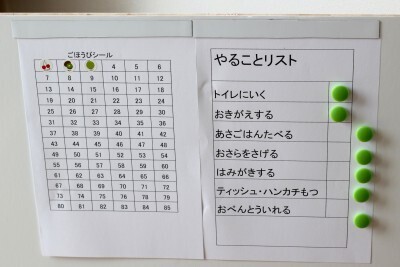 ごほうびシール
4 5 6
7 8 9 10 11 12
13 14 15 16 17 18
19 20 21 22 23 24
25 26 27 28 29 30
31 32 33 34 35 36
37 38 39 40 41 42
43 44 45 46 47 48
49 50 51 52 53 54
55 56 57 58 59 60
61 62 63 64 65 66
67 68 69 70 71 72
73 74 75 76 78 79
80 81 82 83 84 85
やることリスト
トイレにいく
おきがえする
あさごはんたべる
おさらをさげる
はみがきする
ティッシュ・ハンカチもつ
おべんとういれる